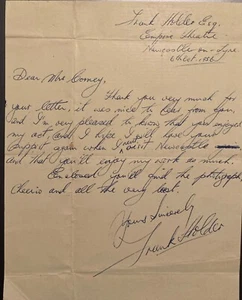 Frank Holder Esq.
Empire Theatre
Newcastle-on-Tyne
6th Oct. 1956
Dear Mrs Cooney,
Thank you very much for
your letter, it was nice to hear from you,
and I'm very pleased to know that you enjoyed
my act and I hope I will have your
support again when I next visit Newcastle
and that you'll enjoy my work as much.
Enclosed you'll find the photograph,
cheerio and all the very best.
Yours Sincerely
Frank Holder